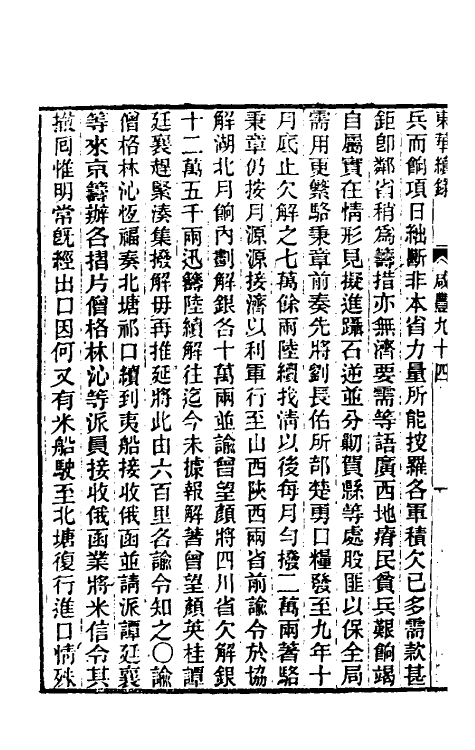 東華續錄　咸豐九十四
兵而餉項日絀斷非本省力量所能按羅各軍積欠已多需款甚
鉅卽鄰省稍爲籌措亦無濟要需等語廣西地瘠民貧兵艱餉竭
自屬實在情形見擬進躡石逆並分勦賀縣等處股匪以保全局
需用更繁駱秉章前奏先將劉長佑所部楚勇口糧發至九年十
月底止欠解之七萬餘兩陸續找清以後每月勻撥二萬兩著駱
秉章仍按月源源接濟以利軍行至山西陝西兩省前諭令於協
解湖北月餉內劃解銀各十萬兩並諭曾望顏將四川省欠解銀
十二萬五千兩迅籌陸續解往迄今未據報解著曾望顏英桂譚
廷襄趕緊湊集撥解毋再推延將此由六百里各諭令知之〇諭
僧格林沁恆福奏北塘祁口續到夷船接收俄函並請派譚廷襄
等來京籌辦各摺片僧格林沁等派員接收俄函業將米信令其
撤囘惟明常旣經出口因何又有米船駛至北塘復行進口情殊